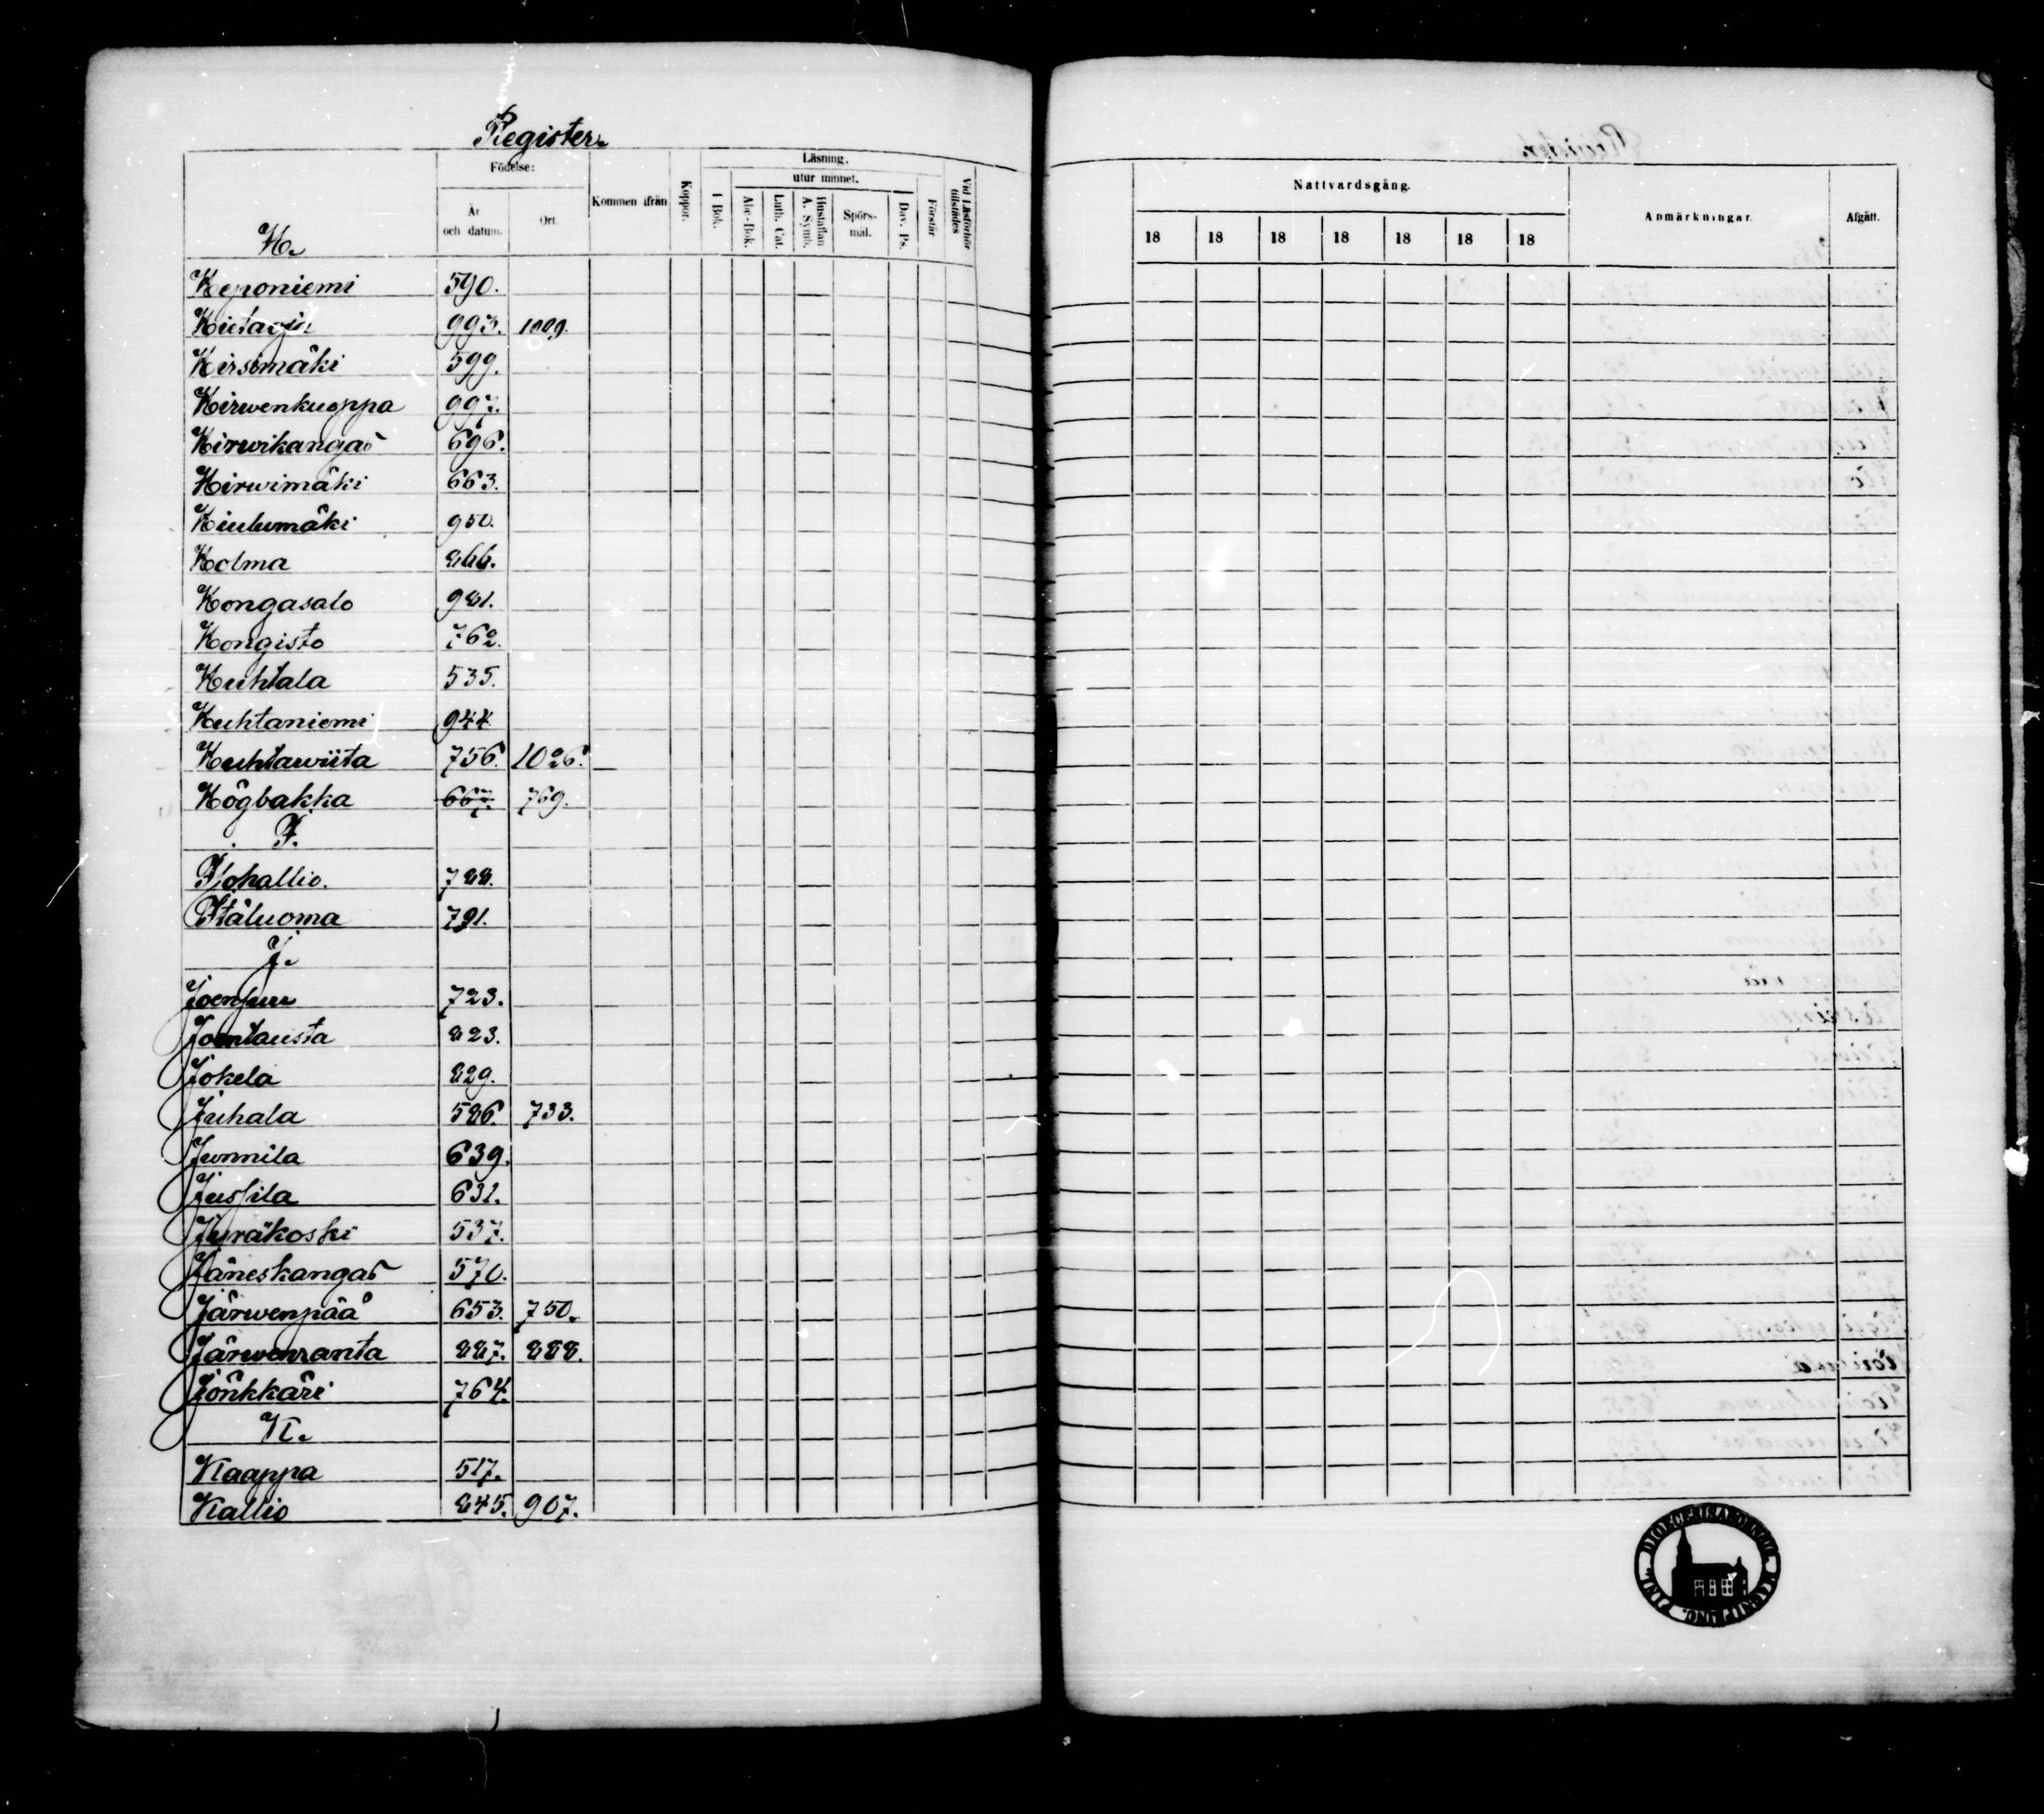 Register.
Födelse:
Läsning.
utur minnet.
År och datum.
Ort.
Kommen ifrån
Koppor.
I Bok.
Abc-Bok.
Luth. Cat.
Hustaflan A. Symb.
Spörs-mål.
Dav. Ps.
Förstår
Vid Läsförhör tillstädes
H.
Heponiemi 590.
993. 1009.
Hirsimäki 599.
Hirwenkuoppa 997.
Hirwikangas 696.
Hirwimäki 663.
Hiulumäki 950.
Holma 866.
Hongasalo 981.
Hongisto 762.
Huhtala 535.
Huhtaniemi 944
Huhtawiita 756. 1026.
Högbakka 667. 769.
I.
Isohallio. 788.
Itäluoma 791.
J.
Joensuu 723.
Joentausta 823.
Jokela 829.
Juhala 586. 733.
Junnila 639.
Jussila 631.
Jyräkoski 537.
Jäneskangas 570.
Järwenpää 653. 750.
Järwenranta 887. 888.
Jönkkäri 764.
K.
Kaappa 517.
Kallio 845. 907.
Nattvardsgång.
Anmärkningar.
Afgått.
18 18 18 18 18 18 18